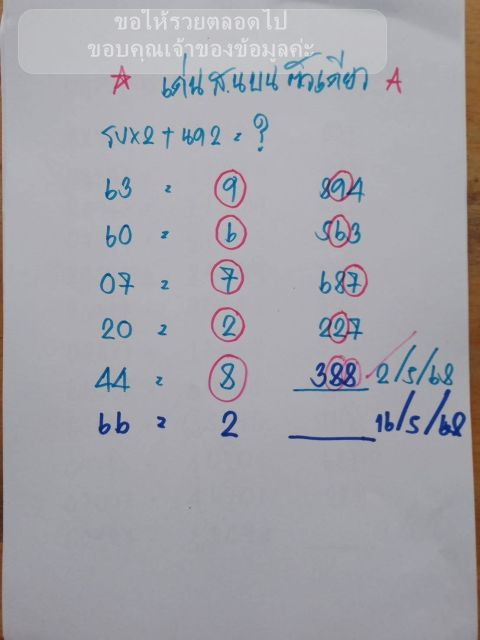 ขอให้รวยตลอดไป
ขอบคุณเจ้าของข้อมูลค่ะ
☆ เด่น ส.นบน ตัวเดียว A
รบx2+นล2 = ?
63 = 9 894
60 = 6 563
07 = 7 687
20 = 2 227
44 = 8 388 2/5/68
66 = 2 16/5/68